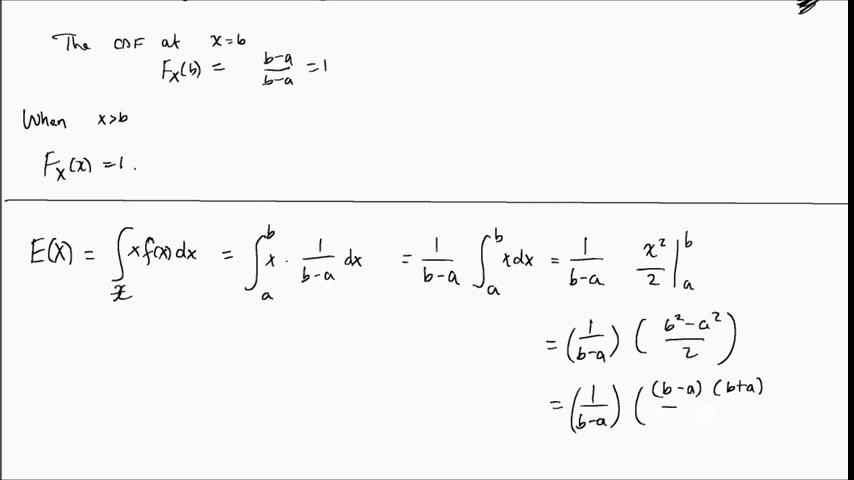 The CDF at x=b
F_X(b) = \frac{b-a}{b-a} = 1
When x>b
F_X(x) = 1.
E(X) = \int_{\mathcal{X}} x f(x) dx = \int_a^b x \cdot \frac{1}{b-a} dx = \frac{1}{b-a} \int_a^b x dx = \frac{1}{b-a} \frac{x^2}{2} |_a^b
= (\frac{1}{b-a}) ( \frac{b^2-a^2}{2} )
= (\frac{1}{b-a}) ( (b-a) (b+a)